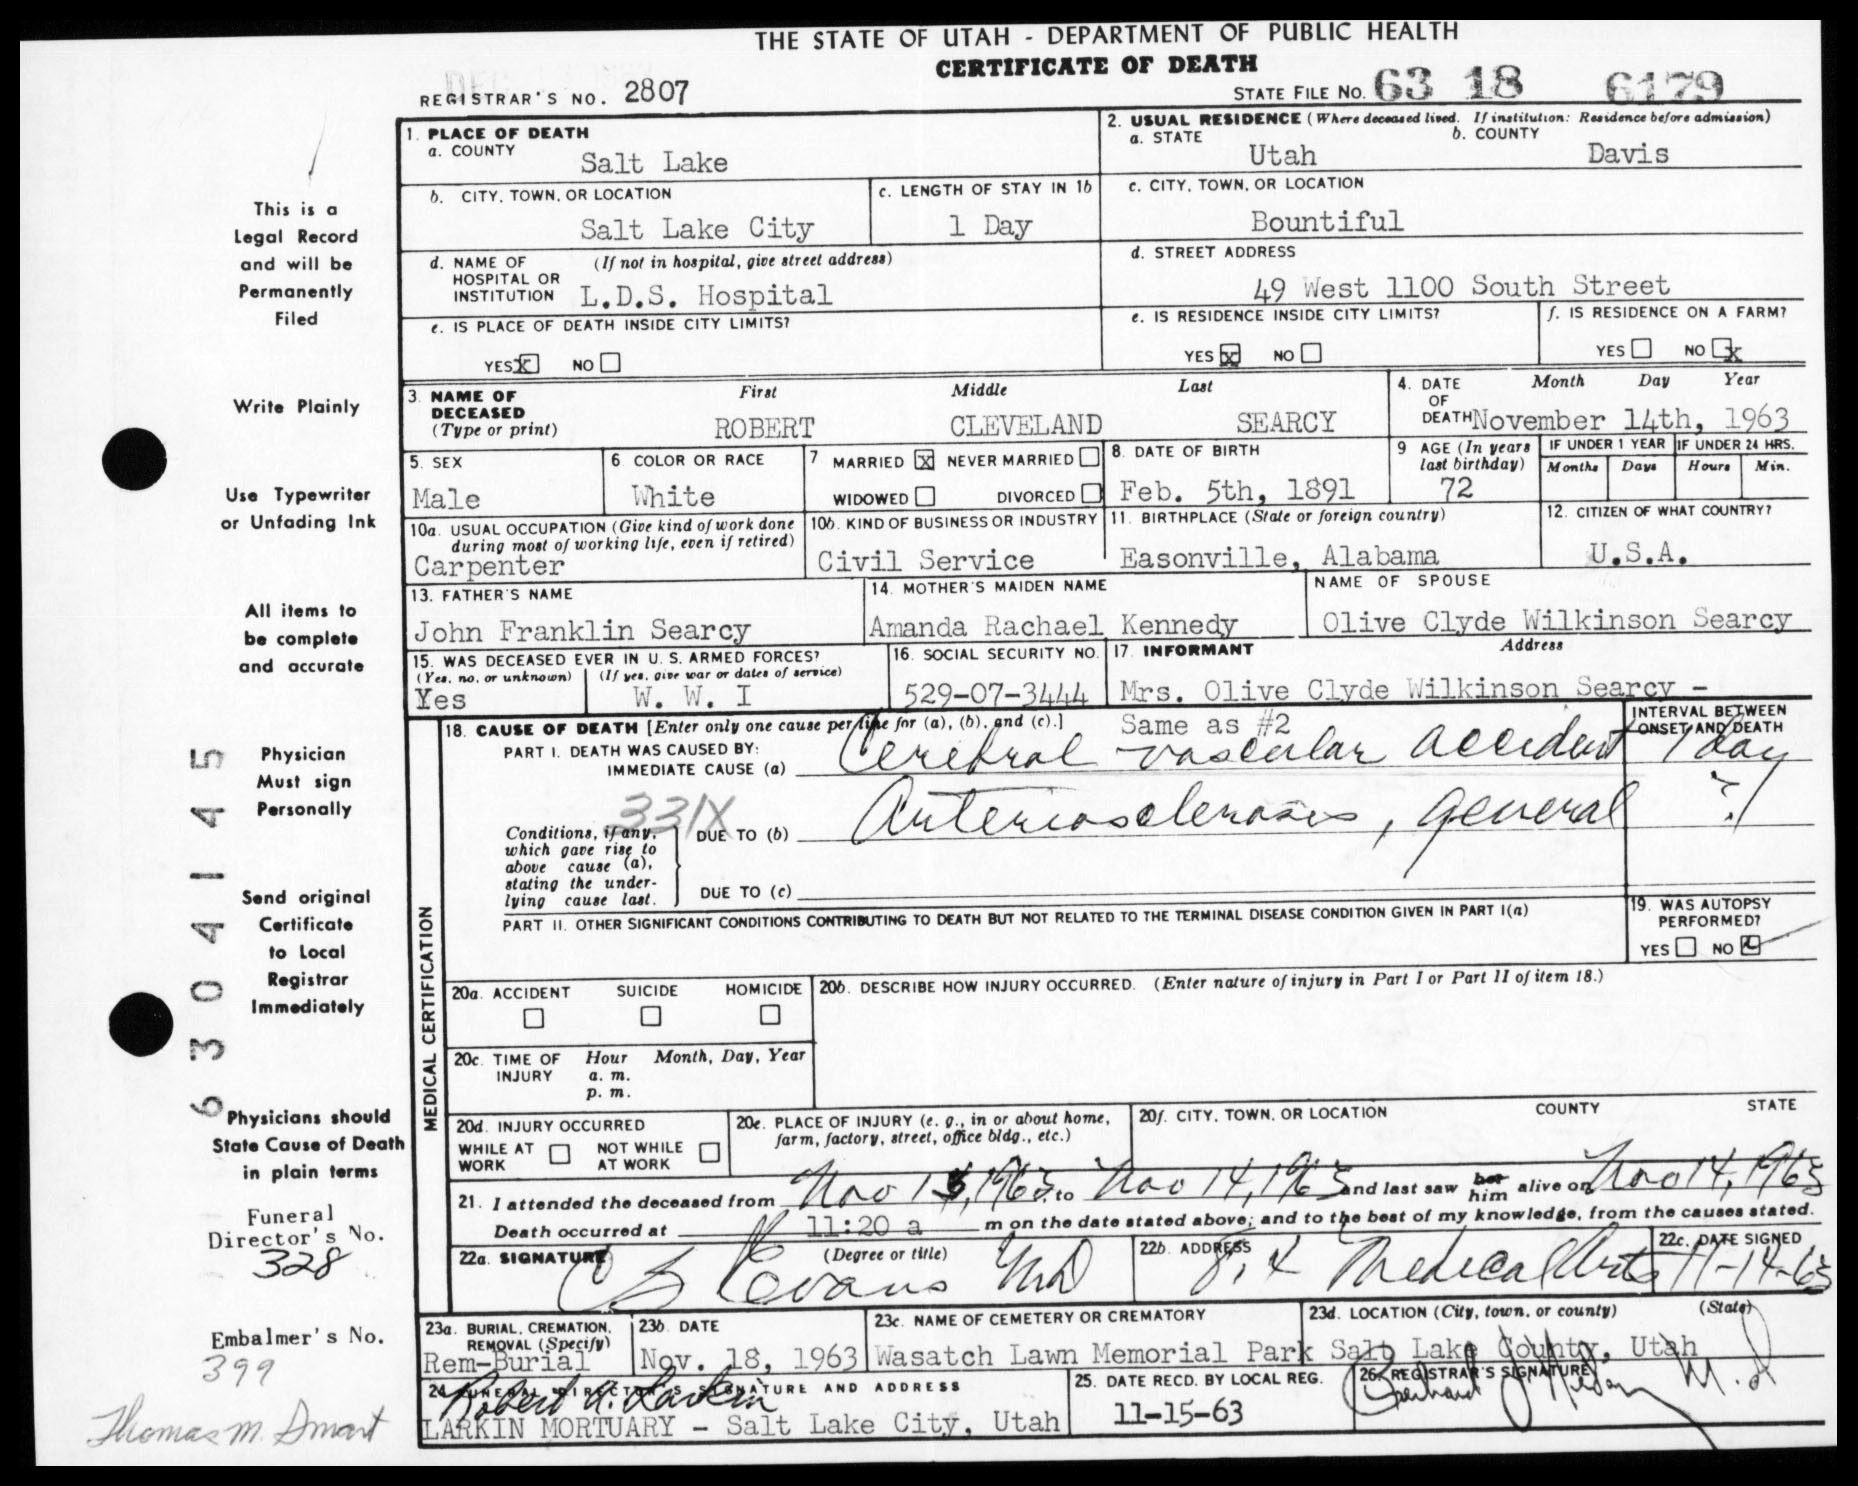 THE STATE OF UTAH - DEPARTMENT OF PUBLIC HEALTH
CERTIFICATE OF DEATH
REGISTRAR'S NO. 2807
STATE FILE NO. 63 18 6179
1. PLACE OF DEATH
a. COUNTY
Salt Lake
2. USUAL RESIDENCE (Where deceased lived. If institution: Residence before admission)
a. STATE
Utah
b. COUNTY
Davis
b. CITY, TOWN, OR LOCATION
Salt Lake City
c. LENGTH OF STAY IN 1b
1 Day
c. CITY, TOWN, OR LOCATION
Bountiful
d. NAME OF HOSPITAL OR INSTITUTION
(If not in hospital, give street address)
L.D.S. Hospital
d. STREET ADDRESS
49 West 1100 South Street
e. IS PLACE OF DEATH INSIDE CITY LIMITS?
YES X NO
e. IS RESIDENCE INSIDE CITY LIMITS?
YES X NO
f. IS RESIDENCE ON A FARM?
YES NO X
3. NAME OF DECEASED
(Type or print)
First Middle Last
ROBERT CLEVELAND SEARCY
4. DATE OF DEATH
Month Day Year
November 14th, 1963
5. SEX
Male
6 COLOR OR RACE
White
7 MARRIED X NEVER MARRIED
WIDOWED DIVORCED
8. DATE OF BIRTH
Feb. 5th, 1891
9 AGE (In years last birthday)
72
IF UNDER 1 YEAR
Months Days
IF UNDER 24 HRS.
Hours Min.
10a. USUAL OCCUPATION (Give kind of work done during most of working life, even if retired)
Carpenter
10b. KIND OF BUSINESS OR INDUSTRY
Civil Service
11. BIRTHPLACE (State or foreign country)
Easonville, Alabama
12. CITIZEN OF WHAT COUNTRY?
U.S.A.
13. FATHER'S NAME
John Franklin Searcy
14. MOTHER'S MAIDEN NAME
Amanda Rachael Kennedy
NAME OF SPOUSE
Olive Clyde Wilkinson Searcy
15. WAS DECEASED EVER IN U. S. ARMED FORCES?
(Yes, no, or unknown) (If yes, give war or dates of service)
Yes W. W. I
16. SOCIAL SECURITY NO.
529-07-3444
17. INFORMANT Address
Mrs. Olive Clyde Wilkinson Searcy -
Same as #2
18. CAUSE OF DEATH [Enter only one cause per line for (a), (b), and (c).]
INTERVAL BETWEEN ONSET AND DEATH
PART I. DEATH WAS CAUSED BY:
IMMEDIATE CAUSE (a) Cerebral vascular accident 1 day
331X
Conditions, if any, which gave rise to above cause (a), stating the underlying cause last.
DUE TO (b) Arteriosclerosis, general ?
DUE TO (c)
PART II. OTHER SIGNIFICANT CONDITIONS CONTRIBUTING TO DEATH BUT NOT RELATED TO THE TERMINAL DISEASE CONDITION GIVEN IN PART I(a)
19. WAS AUTOPSY PERFORMED?
YES NO
MEDICAL CERTIFICATION
20a. ACCIDENT SUICIDE HOMICIDE
20b. DESCRIBE HOW INJURY OCCURRED. (Enter nature of injury in Part I or Part II of item 18.)
20c. TIME OF INJURY
Hour Month, Day, Year
a. m.
p. m.
20d. INJURY OCCURRED
WHILE AT WORK NOT WHILE AT WORK
20e. PLACE OF INJURY (e. g., in or about home, farm, factory, street, office bldg., etc.)
20f. CITY, TOWN, OR LOCATION COUNTY STATE
21. I attended the deceased from Nov 13, 1963, to Nov 14, 1963 and last saw her him alive on Nov 14, 1963
Death occurred at 11:20 a m on the date stated above; and to the best of my knowledge, from the causes stated.
22a. SIGNATURE (Degree or title)
Evans MD
22b. ADDRESS
Medical Arts
22c. DATE SIGNED
11-14-63
23a. BURIAL, CREMATION, REMOVAL (Specify)
Rem-Burial
23b. DATE
Nov. 18, 1963
23c. NAME OF CEMETERY OR CREMATORY
Wasatch Lawn Memorial Park
23d. LOCATION (City, town, or county) (State)
Salt Lake County, Utah
24. FUNERAL DIRECTOR'S SIGNATURE AND ADDRESS
Robert A. Larkin
LARKIN MORTUARY - Salt Lake City, Utah
25. DATE RECD. BY LOCAL REG.
11-15-63
26. REGISTRAR'S SIGNATURE
M.D
This is a
Legal Record
and will be
Permanently
Filed
Write Plainly
Use Typewriter
or Unfading Ink
All items to
be complete
and accurate
Physician
Must sign
Personally
Send original
Certificate
to Local
Registrar
Immediately
Physicians should
State Cause of Death
in plain terms
Funeral
Director's No.
328
Embalmer's No.
399
Thomas M. Smart
63 04145